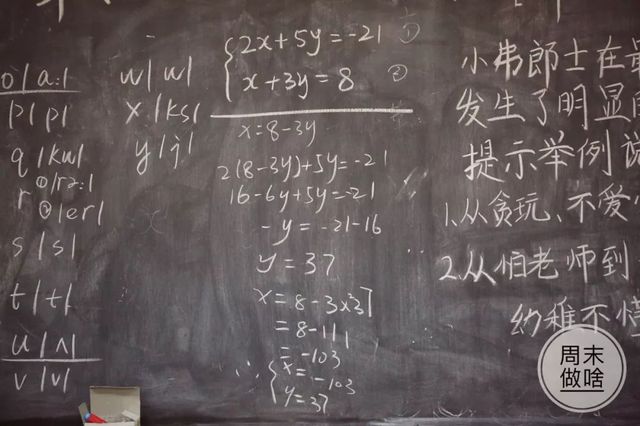 o/a:/
p/p/
q/kw/
r ①/rɑ:/
②/er/
s/s/
t/t/
u/ʌ/
v/v/
w/w/
x/ks/
y/j/
{2x+5y=-21 ①
x+3y=8 ②
x=8-3y
2(8-3y)+5y=-21
16-6y+5y=-21
-y=-21-16
y=37
x=8-3×37
=8-111
=-103
∴{x=-103
y=37
小弗郎士在最
发生了明显
提示举例说
1.从贪玩、不爱
2.从怕老师到
幼稚不懂
周末
做啥